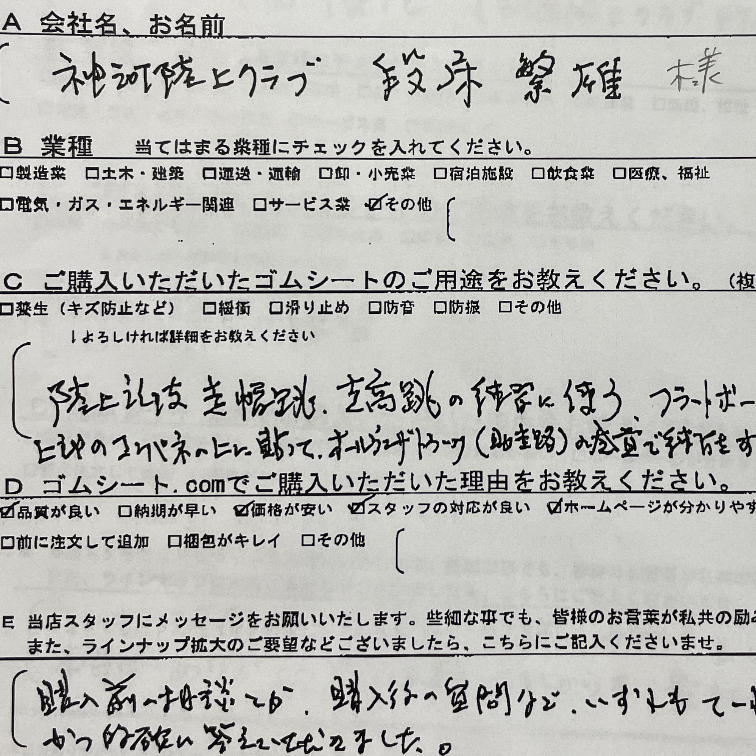 A 会社名、お名前
神河陸上クラブ 段床 繁雄 様
B 業種 当てはまる業種にチェックを入れてください。
□製造業 □土木・建築 □運送・運輸 □卸・小売業 □宿泊施設 □飲食業 □医療、福祉
□電気・ガス・エネルギー関連 □サービス業 ☑その他
C ご購入いただいたゴムシートのご用途をお教えください。(複
□養生(キズ防止など) □緩衝 □滑り止め □防音 □防振 □その他
↓よろしければ詳細をお教えください
陸上競技 走幅跳、走高跳の練習に使う、フラットボー
上記のコンパネの上に貼って、オールウェザートラック(助走路)の感覚で練習をす
D ゴムシート.comでご購入いただいた理由をお教えください。
☑品質が良い □納期が早い ☑価格が安い ☑スタッフの対応が良い ☑ホームページが分かりやす
□前に注文して追加 □梱包がキレイ □その他
E 当店スタッフにメッセージをお願いいたします。些細な事でも、皆様のお言葉が私共の励み
また、ラインナップ拡大のご要望などございましたら、こちらにご記入くださいませ。
購入前の相談とか、購入後の質問など、いずれもてい
かつ的確に答えていただきました。